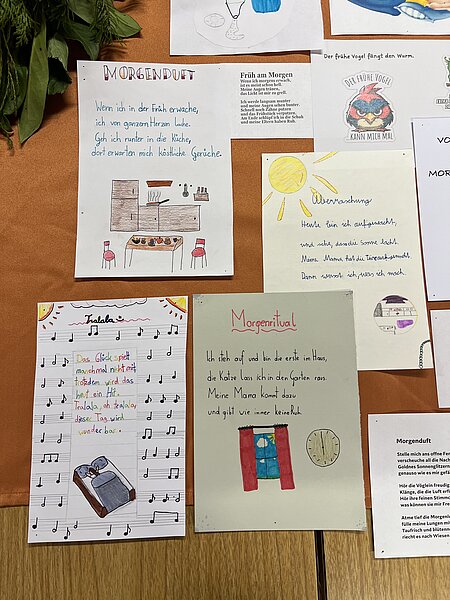 MORGENDUFT
Wenn ich in der Früh erwache,
ich von ganzem Herzen lache.
Geh ich runter in die Küche,
dort erwarten mich köstliche Gerüche.
Früh am Morgen
Wenn ich morgens erwach,
ist es meist schon hell.
Meine Augen tränen,
das Licht ist mir zu grell.
Ich werde langsam munter
und meine Augen sehen bunter.
Schnell noch Zähne putzen
und das Frühstück verputzen.
Am Ende schlupf ich in die Schuh
und meine Eltern haben Ruh.
Der frühe Vogel fängt den Wurm.
DER FRÜHE VOGEL
KANN MICH MAL
Überraschung
Heute bin ich aufgewacht,
und seht, dass die Sonne lacht.
Meine Mama hat die Tür aufgemacht.
Dann
ich, was ich mach.
Tralala
Das Glück spielt
manchmal nicht mit,
trotzdem wird das
heut ein Hit.
Tralala, oh tralala,
dieser Tag wird
wunderbar.
Morgenritual
Ich steh auf und bin die erste im Haus,
die Katze lass ich in den Garten raus.
Meine Mama kommt dazu
und gibt wie immer keine Ruh.
VO
MOR
Morgenduft
Stelle mich ans offne Fen
verscheuche all die Nach
Goldnes Sonnenglitzern
genauso wie es mir gefä
Hör die Vöglein freudig
Klänge, die die Luft erf
Hör ihre feinen Stimm
was können sie mir Fre
Atme tief die Morgenl
fülle meine Lungen mit
Taufrisch und blütenr
riecht es nach Wiesen